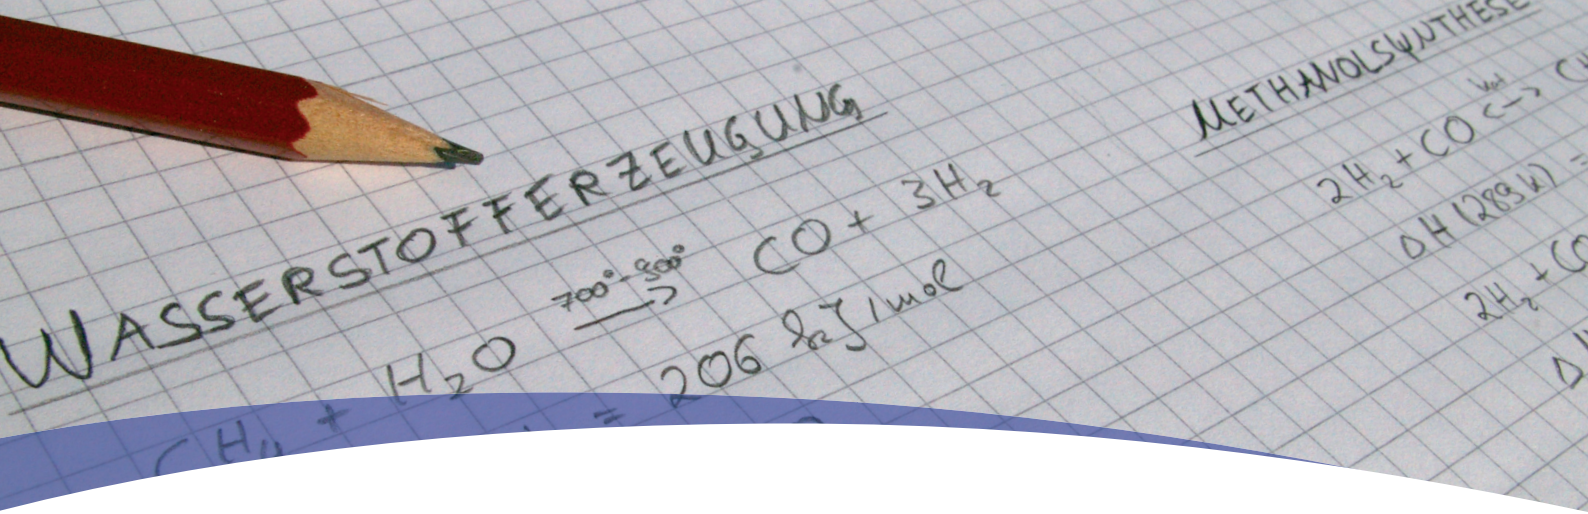 WASSERSTOFFERZEUGUNG
700°-900°
CH₄ + H₂O → CO + 3H₂
= 206 kJ/mol
METHANOLSYNTHESE
2H₂ + CO <-> CH
ΔH (289 K) =
2H₂ + CO